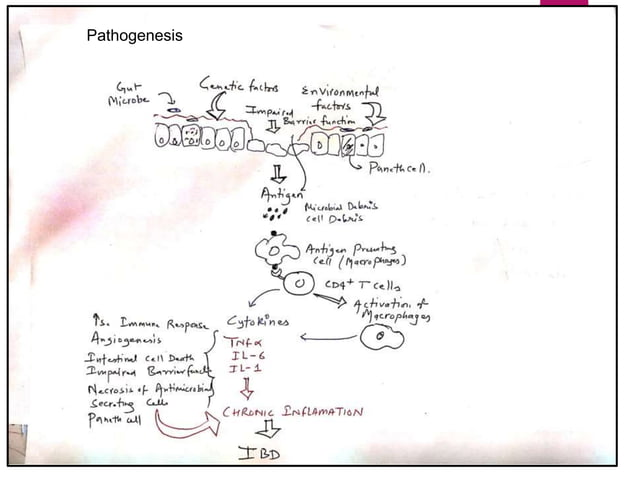 Pathogenesis
Gut
Microbe
Genetic factors
Environmental
factors
Impaired
Barrier function
Paneth cell.
Antigen
Microbial Debris
cell Debris
Antigen Presenting
Cell (Macrophages)
CD4+ T cells
Activation of
Macrophages
Cytokines
TNFα
IL-6
IL-1
↑s. Immune Response
Angiogenesis
Intestinal Cell Death
Impaired Barrier funct
Necrosis of Antimicrobial
Secreting Cells
Paneth cell
CHRONIC INFLAMATION
IBD